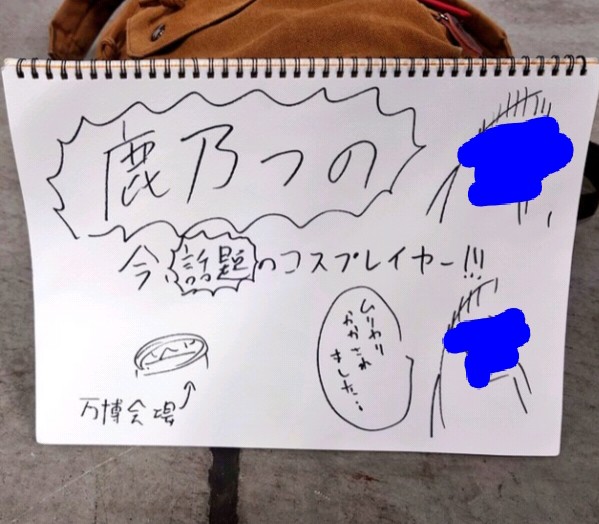 鹿乃つの
今、話題のコスプレイヤー!!!
ムリやり
かかされ
ました…
万博会場